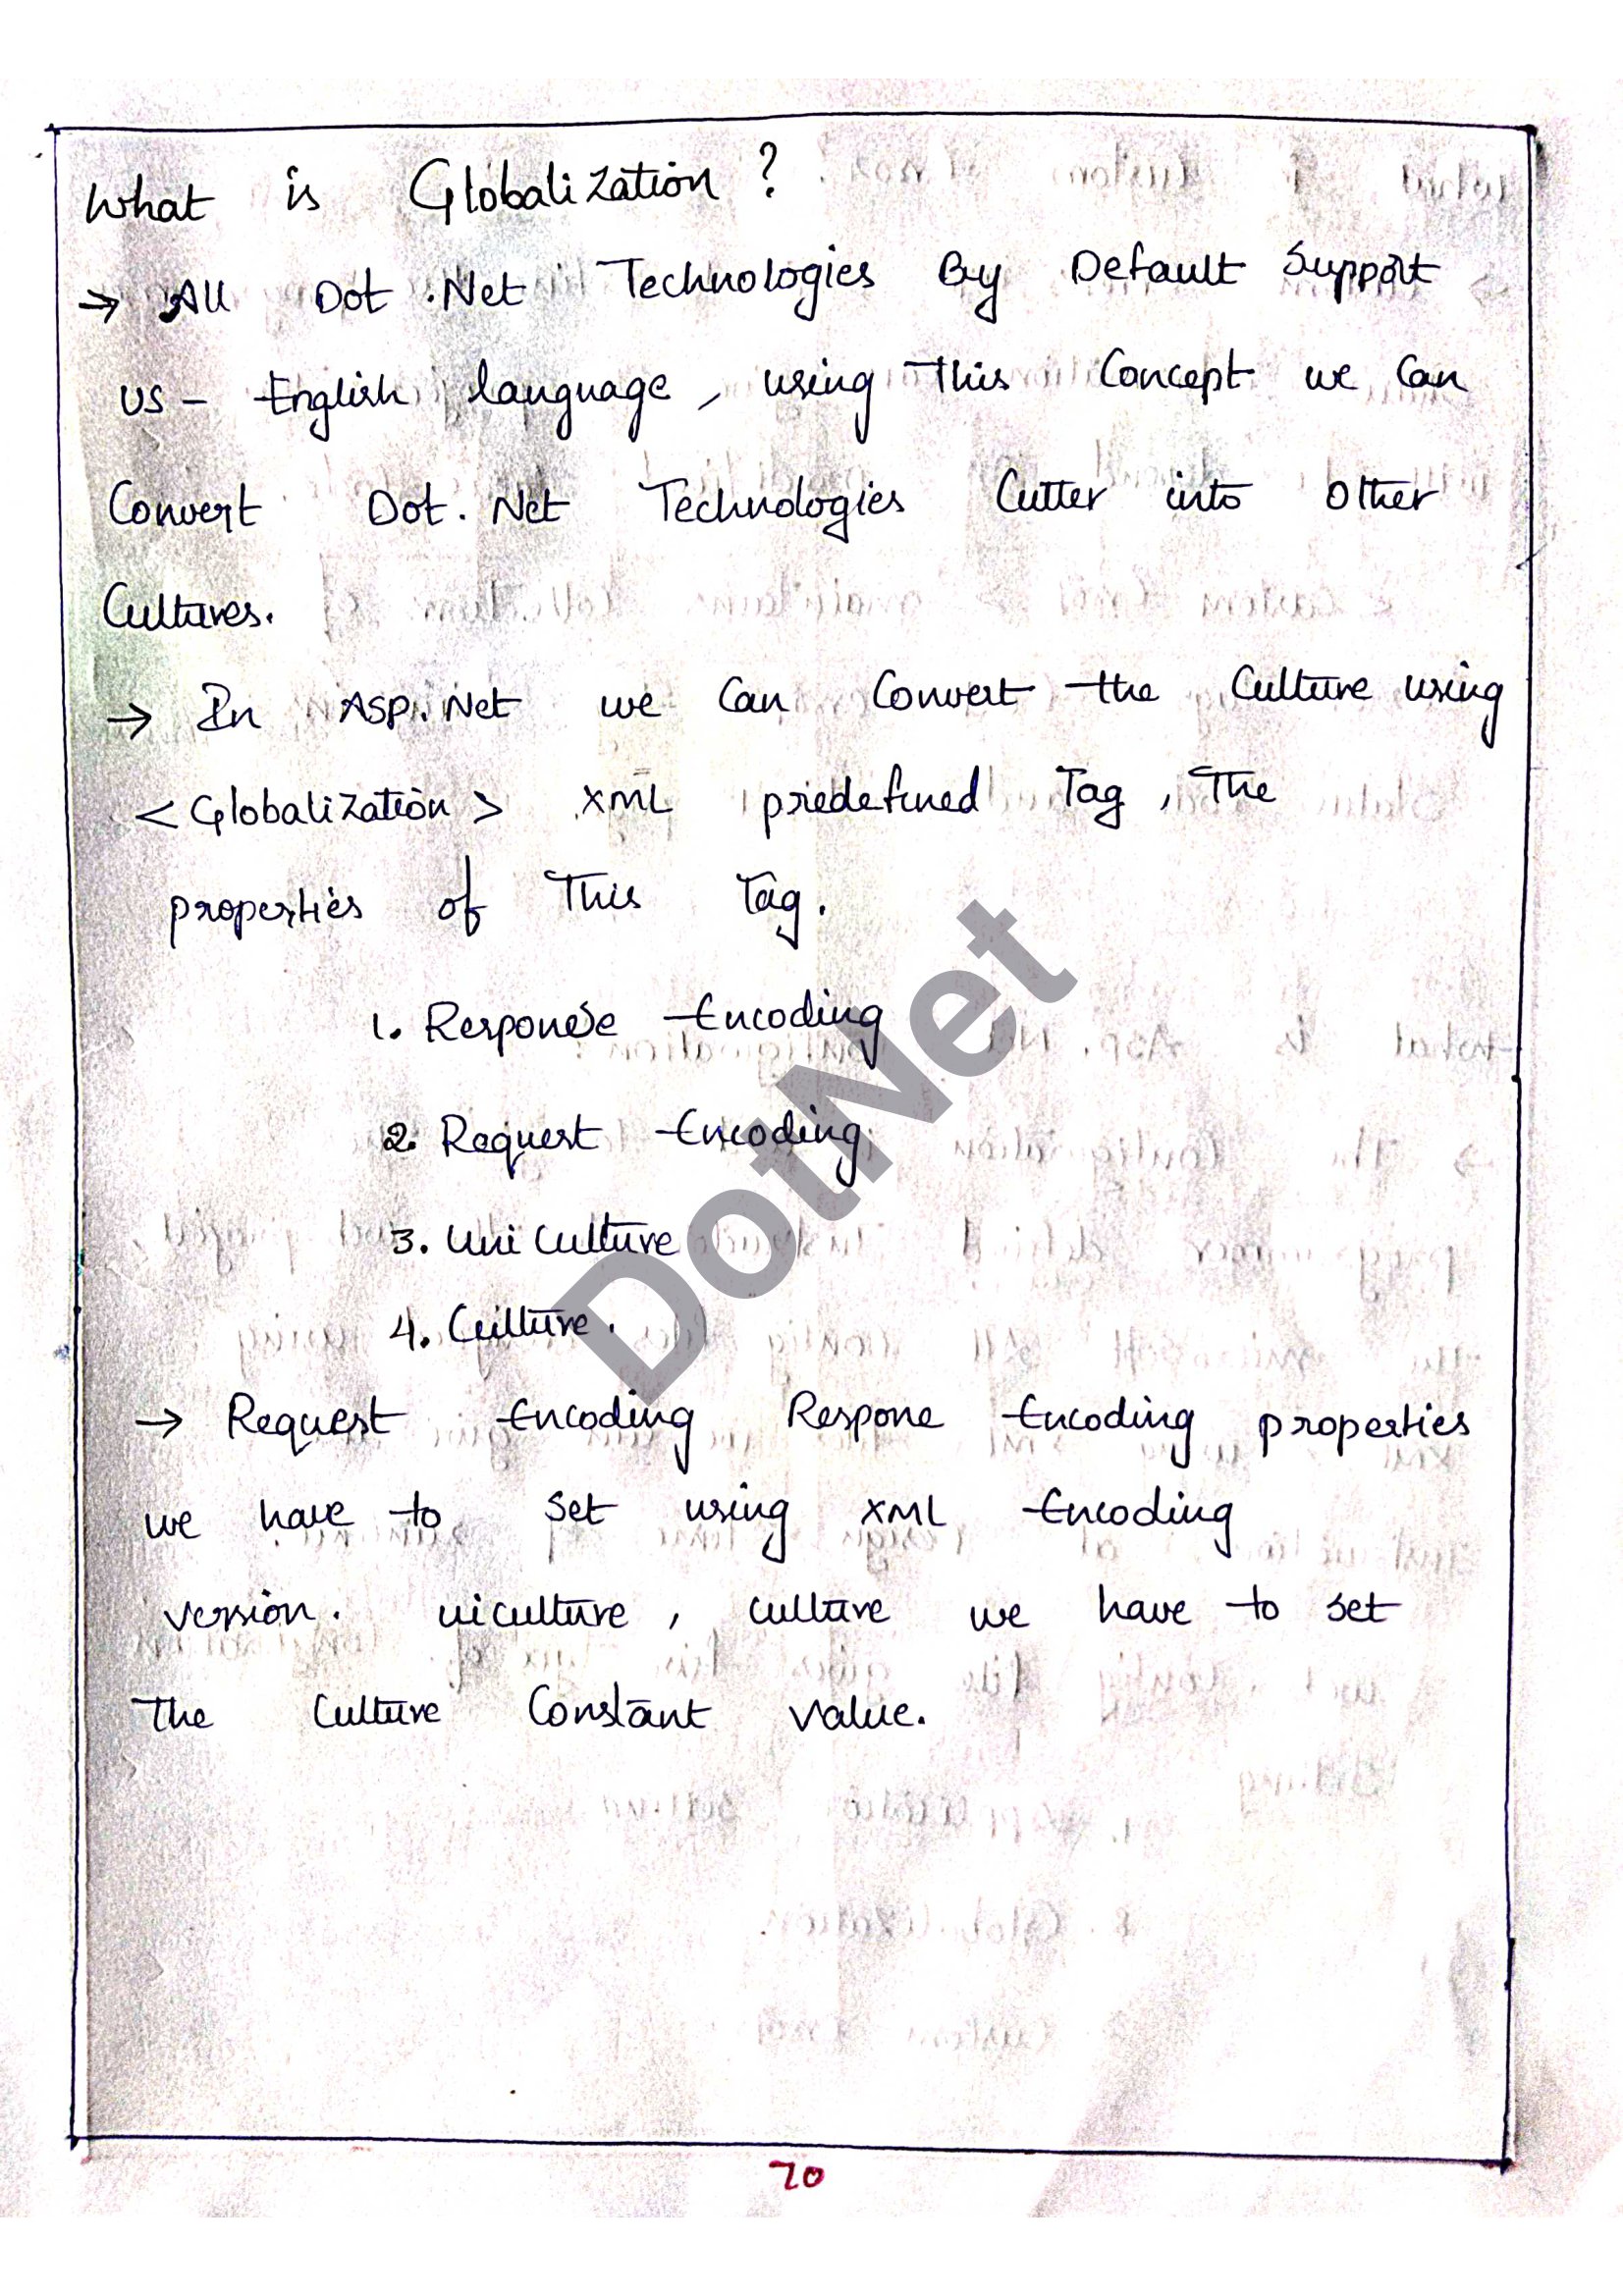 What is Globalization ?
→ All Dot .Net Technologies By Default Support
US - English language, using This Concept we Can
Convert Dot. Net Technologies Cutter into Other
Cultures.
→ In ASP. Net we Can Convert the Culture using
< Globalization > XML predefined Tag, The
properties of This Tag.
1. Response Encoding
2. Request Encoding
3. Uni Culture
4. Culture.
→ Request Encoding Respone Encoding properties
we have to set using XML Encoding
version. uiculture, culture we have to set
The Culture Constant value.
DotNet
70